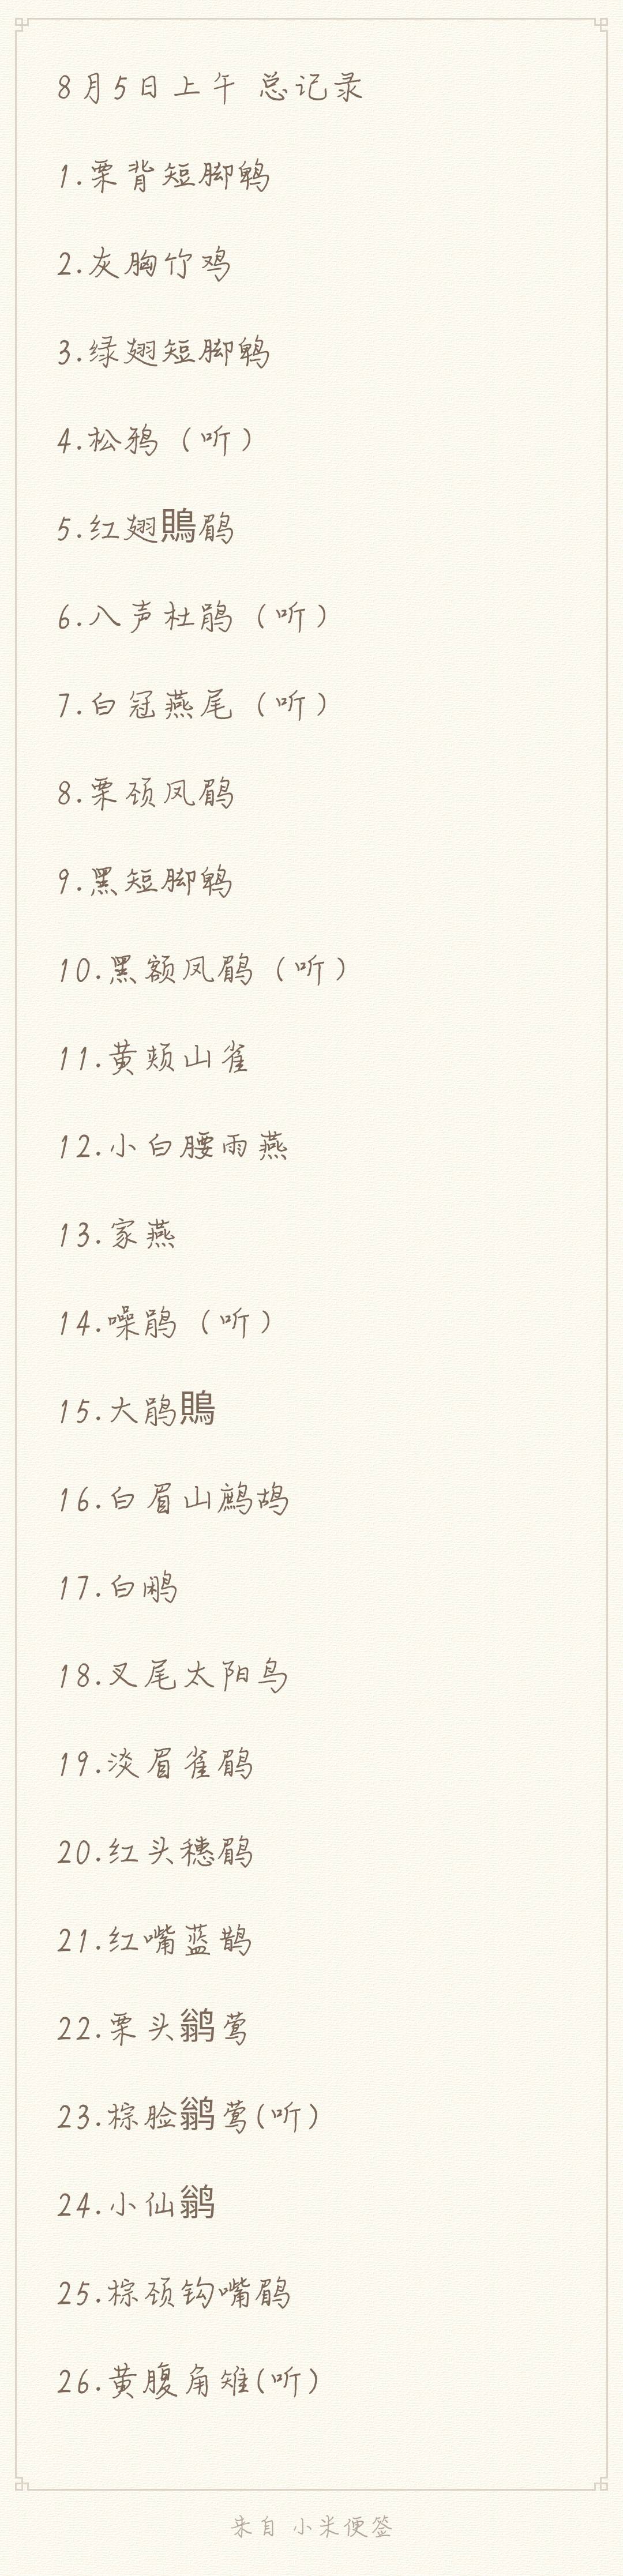 8月5日上午 总记录
1.栗背短脚鹎
2.灰胸竹鸡
3.绿翅短脚鹎
4.松鸦（听）
5.红翅鵙鹛
6.八声杜鹃（听）
7.白冠燕尾（听）
8.栗颈凤鹛
9.黑短脚鹎
10.黑额凤鹛（听）
11.黄颊山雀
12.小白腰雨燕
13.家燕
14.噪鹃（听）
15.大鹃鵙
16.白眉山鹧鸪
17.白鹇
18.叉尾太阳鸟
19.淡眉雀鹛
20.红头穗鹛
21.红嘴蓝鹊
22.栗头鹟莺
23.棕脸鹟莺(听)
24.小仙鹟
25.棕颈钩嘴鹛
26.黄腹角雉(听)
来自 小米便签